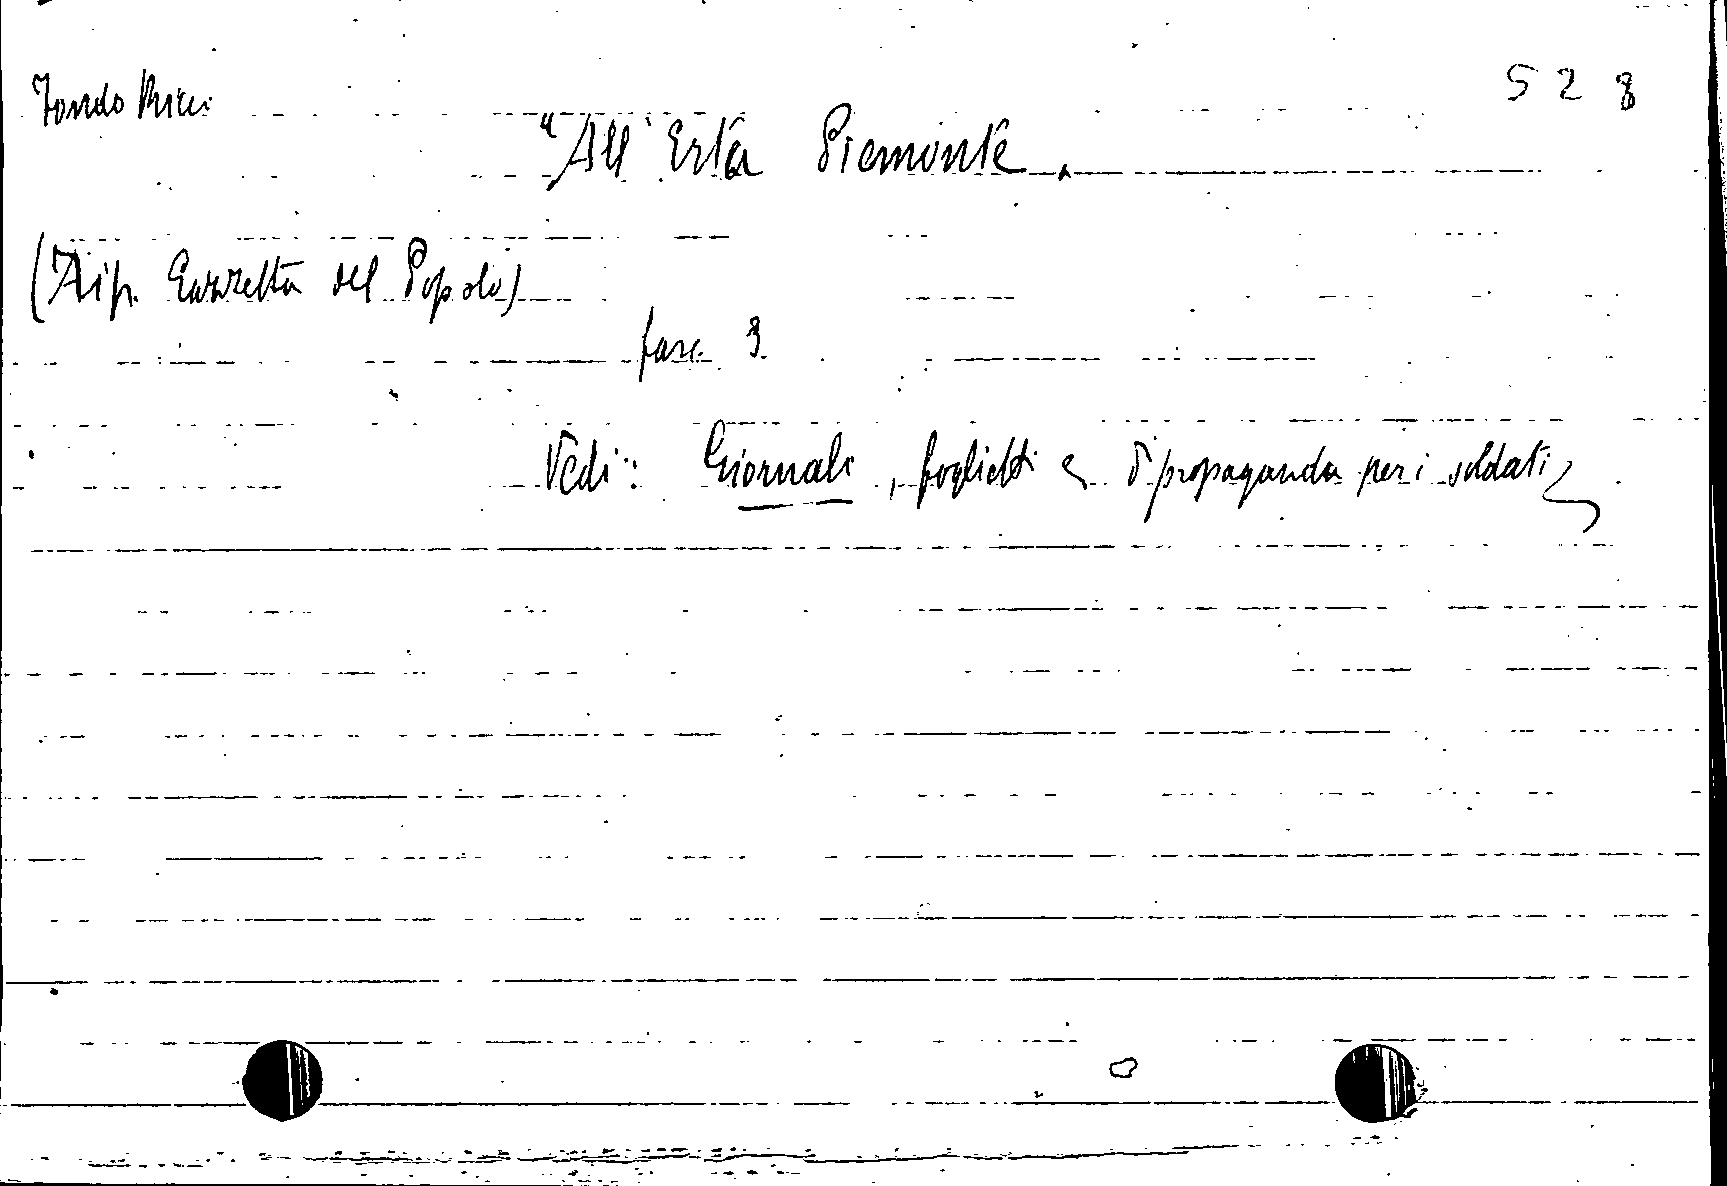 Fondo Ricci
528
"All'Erta Piemonte"
(Tip. Gazzetta del Popolo)
fasc. 3
Vedi: Giornali, foglietti di propaganda per i soldati